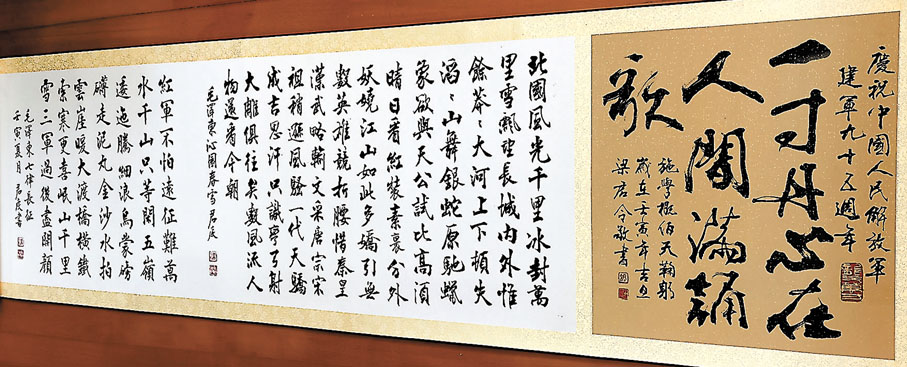 慶祝中國人民解放軍
建軍九十五週年
一寸丹心在
人間滿誦
歌
施學概伯天鞠躬
歲在壬寅年吉旦
梁君令敬書
北國風光千里冰封萬
里雪飄望長城內外惟
餘莽〻大河上下頓失
滔〻山舞銀蛇原馳蠟
象欲與天公試比高須
晴日看紅裝素裹分外
妖嬈江山如此多嬌引無
數英雄競折腰惜秦皇
漢武略輸文采唐宗宋
祖稍遜風騷一代天驕
成吉思汗只識彎弓射
大雕俱往矣數風流人
物還看今朝
毛澤東沁園春雪 君度
紅軍不怕遠征難萬
水千山只等閒五嶺
逶迤騰細浪烏蒙磅
礴走泥丸金沙水拍
雲崖暖大渡橋橫鐵
索寒更喜岷山千里
雪三軍過後盡開顏
毛澤東七律長征
壬寅夏月 君度書